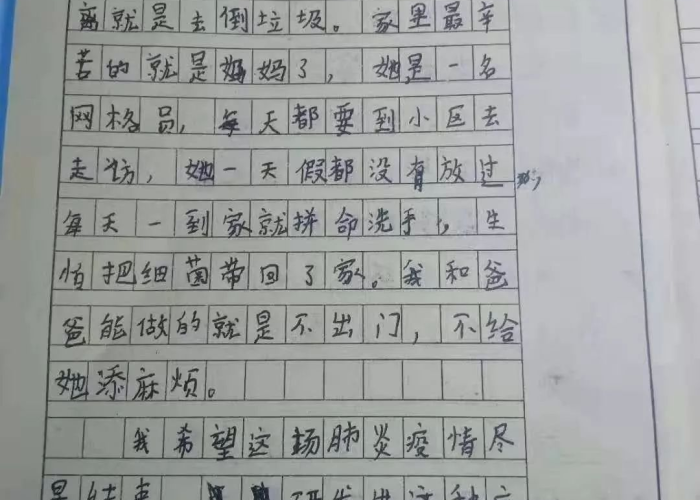 离就是去倒垃圾。家里最辛
苦的就是妈妈了，她是一名
网格员，每天都要到小区去
走访，她一天假都没有放过
每天一到家就拼命洗手，生
怕把细菌带回了家。我和爸
爸能做的就是不出门，不给
她添麻烦。
我希望这场肺炎疫情尽
早结束